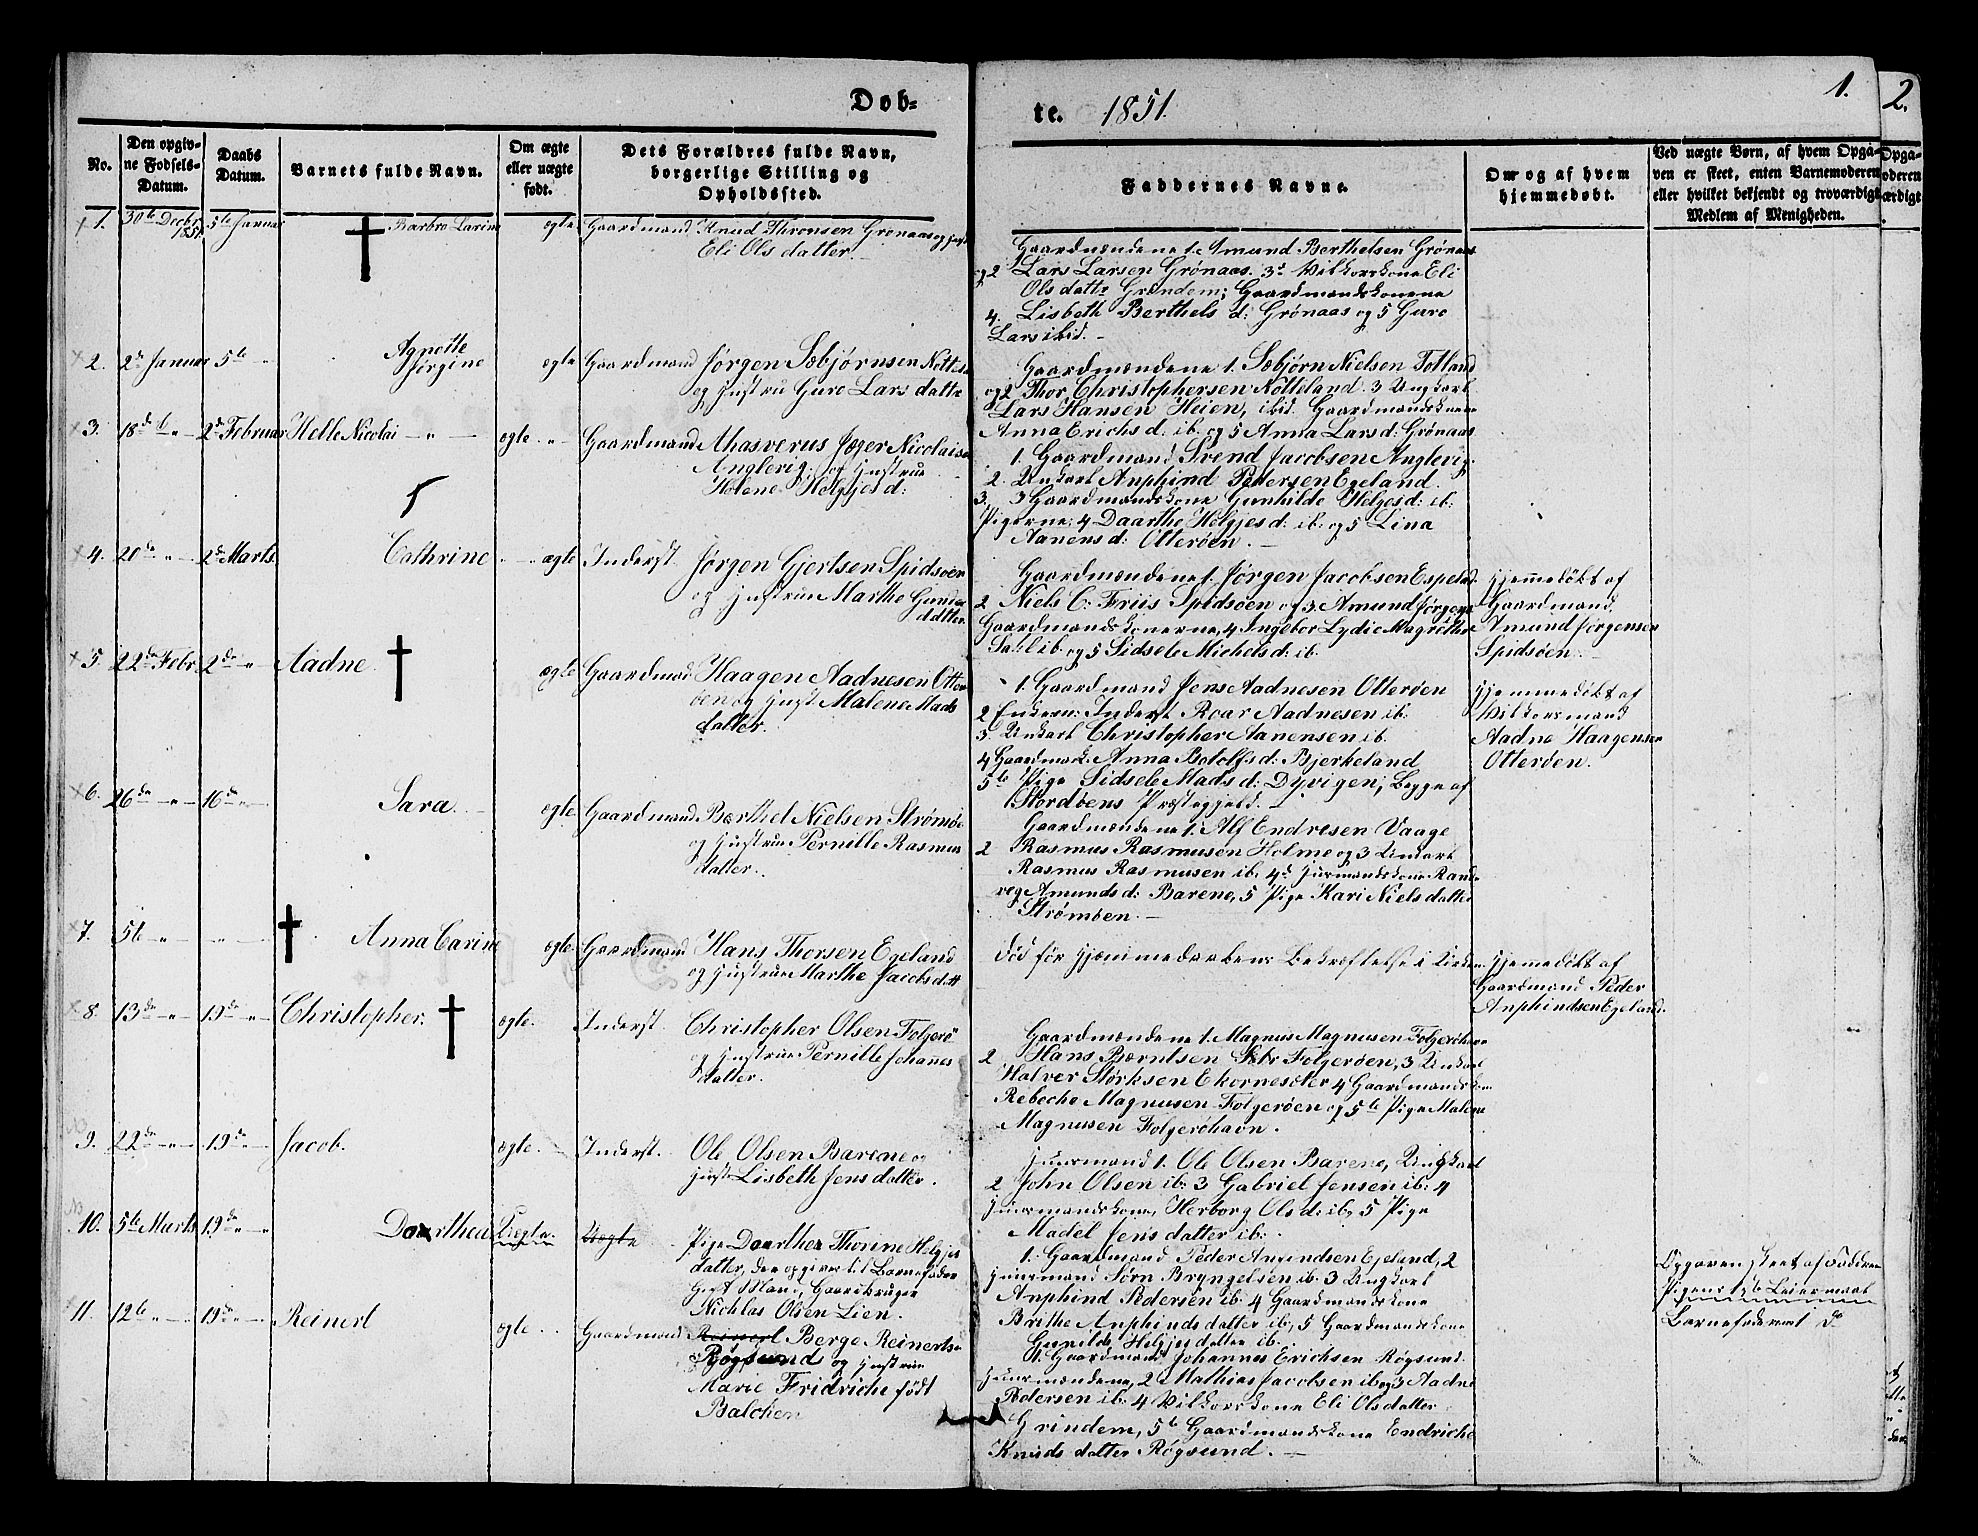 Dob=
te. 1851.
1.
2.
No.
Den opgiv-
ne Fodsels-
Datum.
Daabs
Datum.
Barnets fulde Navn.
Om ægte
eller uægte
født.
Dets Forældres fulde Navn,
borgerlige Stilling og
Opholdssted.
Faddernes Navne.
Om og af hvem
hjemmedøbt.
Ved uægte Børn, af hvem Opga-
ven er skeet, enten Barnemoderen
eller hvilket bekjendt og troværdigt
Medlem af Menigheden.
Opga-
oderen
ærdigt
1. 30te Decbr 5te Januar Barbro Larine ægte Gaardmand Knud Thronsen Grønaas og
1851.
Eli Olsdatter.
Gaardmændene 1. Amund Berthelsen Grønaas
og 2 Lars Larsen Grønaas. 3die Vilkorskone Eli
Olsdattr Grindem; Gaardmandskonerne
4. Lisbeth Berthels d: Grønaas og 5 Guro
Lars ibid. -
2. 2de Januar 5te Agnette
Jørgine ægte Gaardmand Jørgen Sæbjørnsen
og Hustrue Guro Larsdatter
Gaardmændene 1. Sæbjørn Nielsen Totland
og 2 Thor Christophersen Notteland. 3 Ungkarl
Lars Hansen Heien, ibid. Gaardmandskone
Anna Erichs d: ib. og 5 Anna Lars d: Grønaas
3. 18de 2de Februar Helle Nicolai ægte Gaardmand Ahasverus Jæger Nicolaisen
Anglevig og Hustrue
Helene Helgjes d:
1. Gaardmand Svend Jacobsen Anglevig
2. Unkarl Anphind Pedersen Egeland.
3. 3 Gaardmandskone Gunhilde Helgjes d: ib.
Pigerne: 4 Daarthe Helgjes d: ib: og 5 Lina
Aanens d: Otterøen. -
4. 20de 2de Marts Cathrine ægte Inderst. Jørgen Gjertsen Spidsøen
og Hustrue Marthe
datter.
Gaardmændene 1. Jørgen Jacobsen
2 Niels C: Friis Spidsøen og 3. Amund Jørgens
Gaardmandskonerne, 4 Ingebor Lydie Magrethe
Sahl ib. og 5 Sidsele Michels d: ib.
Hjemmedøbt af
Gaardmand
Amund Jørgensen
Spidsøen.
5. 22de Febr. 2de Aadne ægte Gaardmand Haagen Aadnesen Otter
øen og Hustr Malene Mads
datter.
1. Gaardmand Jens Aadnesen Otterøen
2 Inderst Roar Aadnesen ib.
3. Unkarl Christopher Aanensen ib.
4 Gaardmk. Anna Botolfs d: Bjerkeland
5te Pige Sidsele Mads d: Dyvigen; Begge af
Stordøens Præstegjeld. -
Hjemmedøbt af
Vilkorsmand
Aadne Haagensen
Otterøen.
6. 26de 16de Sara. ægte Gaardmand Berthel Nielsen Strømø
og Hustrue Pernille Rasmus
datter.
Gaardmændene 1. Alf Endresen Vaage
2 Rasmus Rasmusen Holme og 3 Unkarl
Rasmus Rasmusen ib. 4de Huusmandskone Rand
veg Amunds d: Barene, 5 Pige Kari Nielsdatter
Strømøen. -
7. 5te Anna Carine ægte Gaardmand Hans Thorsen Egeland
og Hustrue Marthe Jacobs d:
Død før Hjemmedaabens Bekræftelse i Kirken
Hjemmedøbt af
Gaardmand Peder
Anphindsen Egeland.
8. 13de 19de Christopher. ægte. Inderst. Christopher Olsen Folgerø
og Hustrue Pernille Johannes
datter.
Gaardmændene 1. Magnus Magnusen Folgerøhavn
2 Hans Berntsen Folgerøen, 3 Unkarl
Halver Størksen Ekornesæter 4 Gaardmandskone
Rebecha Magnusen Folgerøen og 5te Pige Malene
Magnusen Folgerøhavn.
9. 22de 19de Jacob. ægte. Inderst. Ole Olsen Barene og
Hustr Lisbeth Jensdatter.
Huusmand 1. Ole Olsen Barene, Ungkarl
2 John Olsen ib: 3 Gabriel Jensen ib: 4
Huusmandskone, Herborg Ols d: ib. 5 Pige
Madel Jensdatter ib:
10. 5te Marts 19de Daarthea Uægte. Uægte Pige Daarthea Thorine Helgjes
datter, der opgiver til Barnefader
Gift Mand, Gaardbruger
Nichlas Olsen Lien.
1. Gaardmand Peder Anfindsen Egeland, 2
Huusmand Sørn Bryngelsen ib. 3 Ungkarl
Anphind Pedersen ib: 4 Gaardmandskone
Brithe Anphindsdatter ib, 5 Gaardmandskone
Gunilde Helgjesdatter ib.
Opgaven skeet af Fadderne
Pigens Leiermaal
Barnefaderens
11. 12te 19de Reinert ægte Gaardmand Reinert Berge Reinertsen
Røgsund og Hustrue
Marie Fridriche født
Balchen
1. Gaardmand Johannes Erichsen Røgsund.
Huusmændene, 2 Mathias Jacobsen ib. og 3 Aadne
Pedersen ib. 4 Vilkorskone Eli Olsdatter
Grindem, 5te Gaardmandskone Endriche
Knudsdatter Røgsund. -